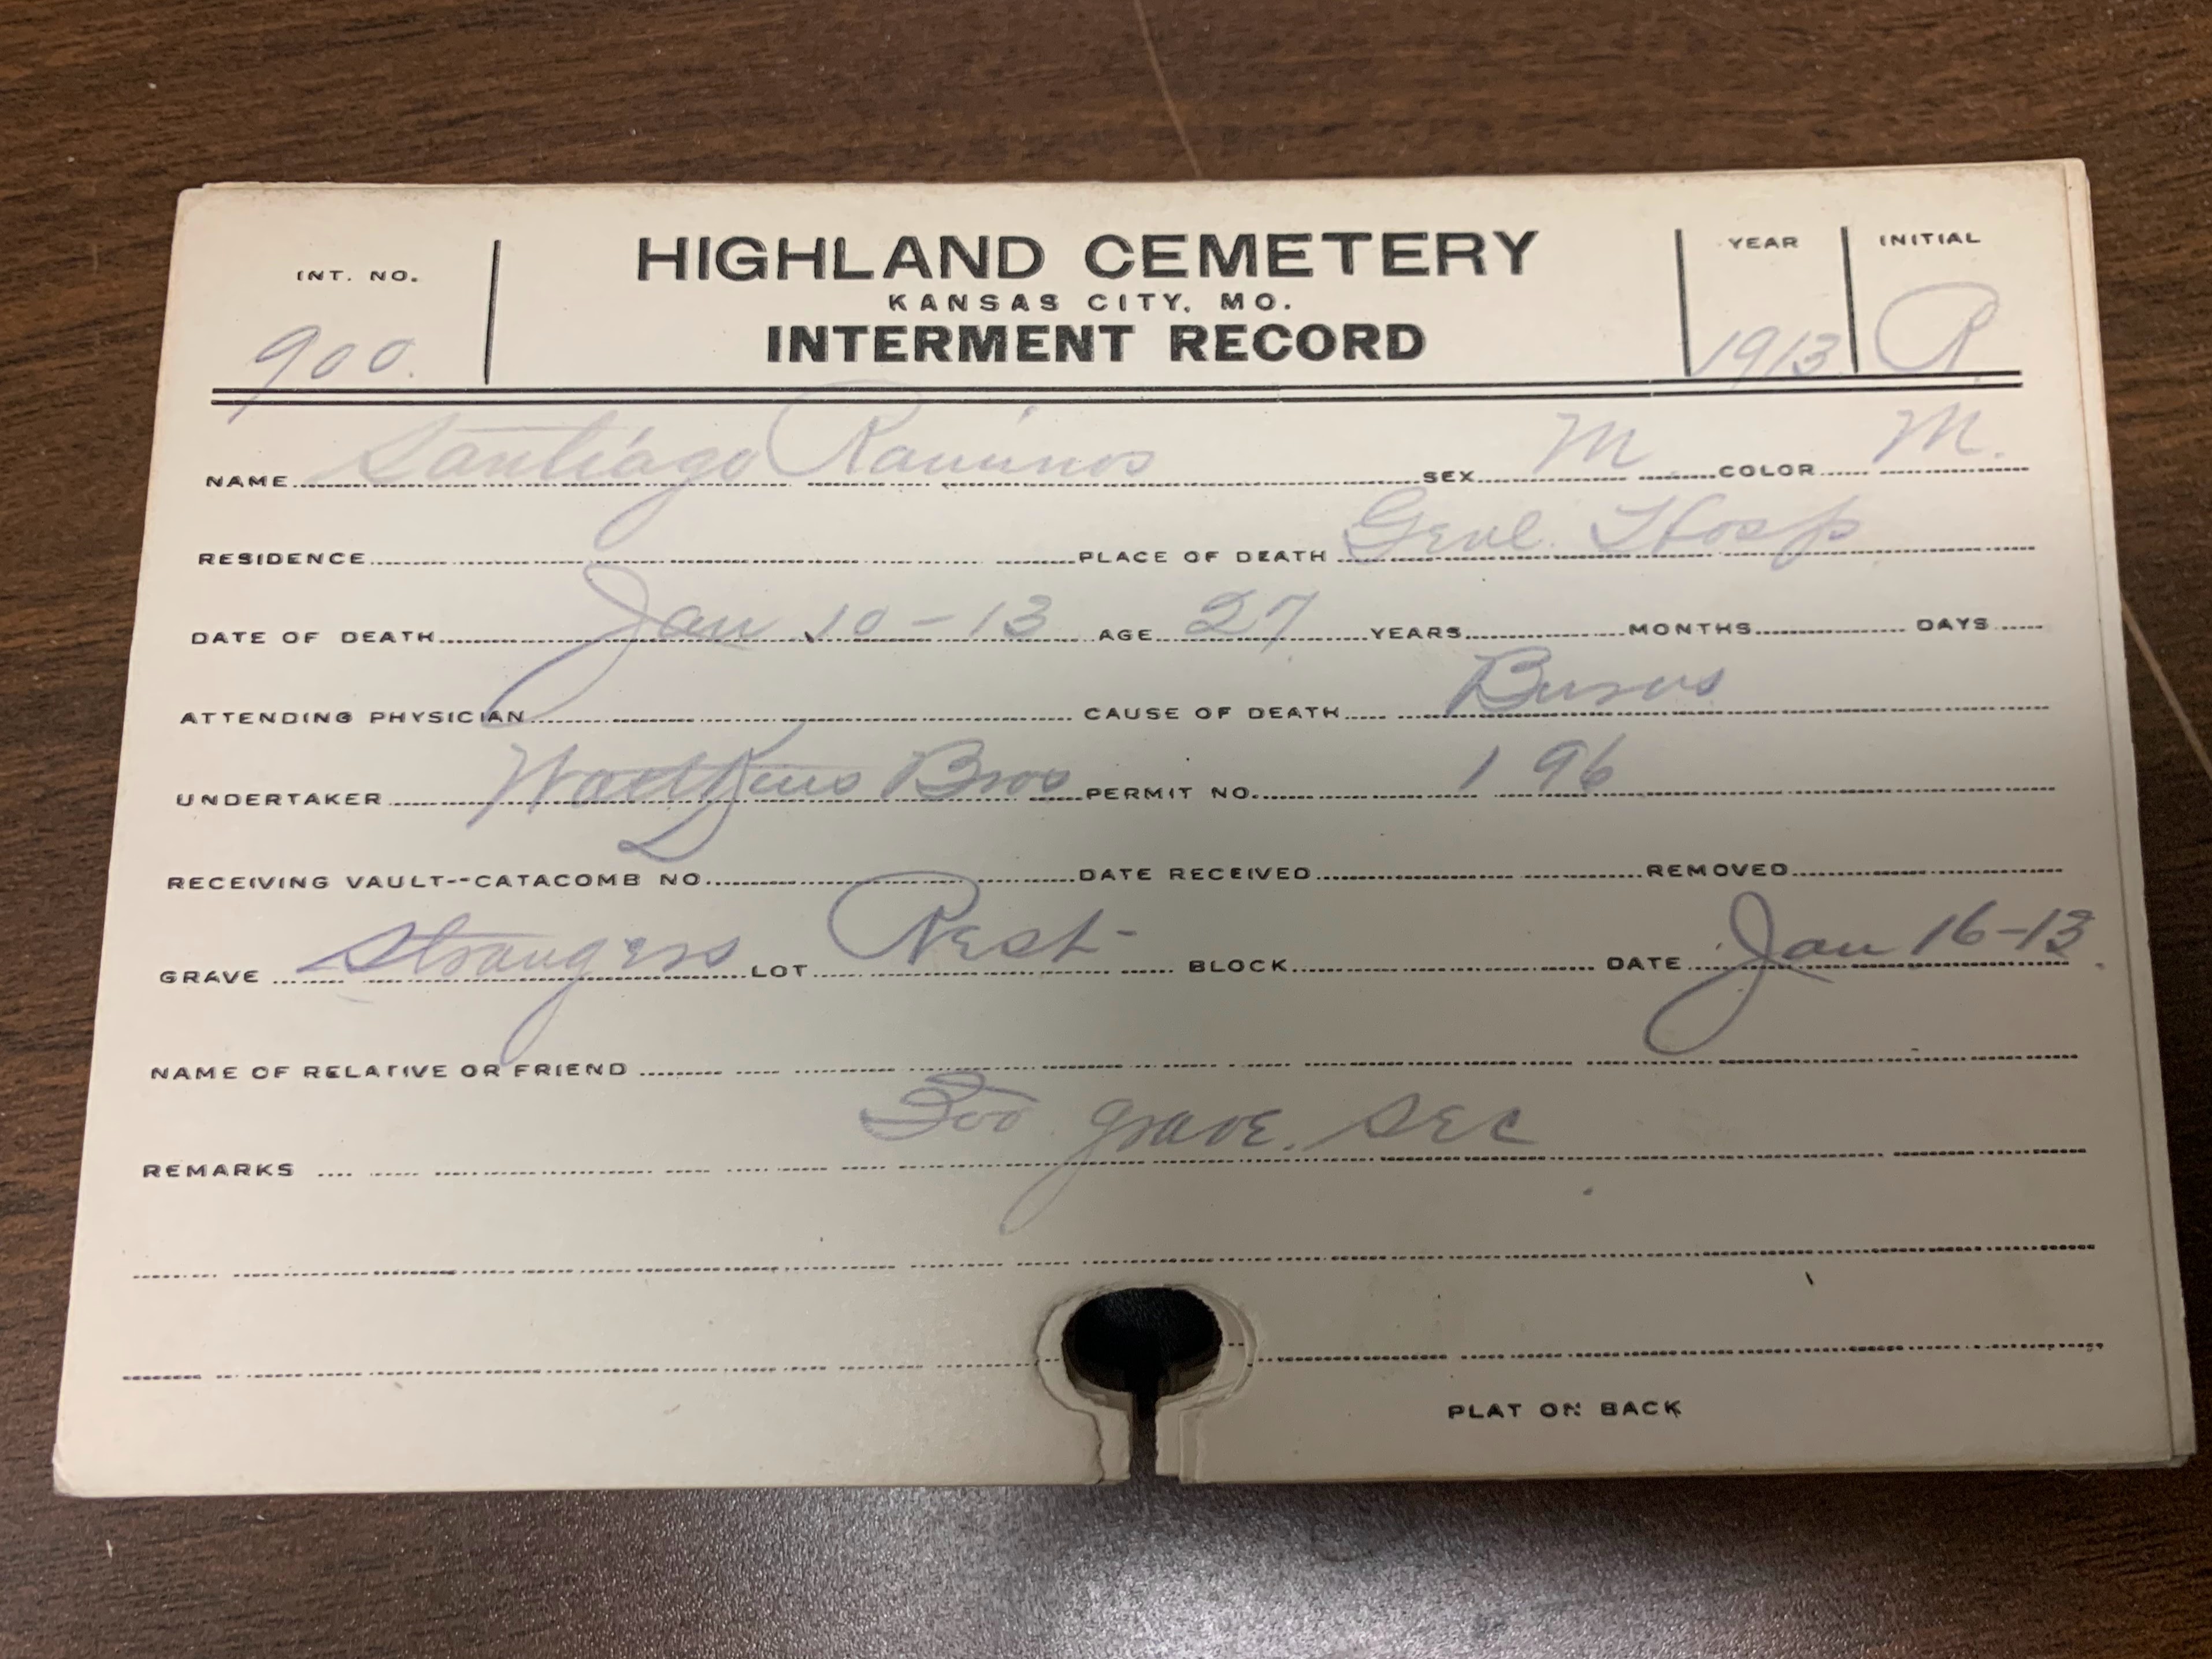 INT. NO. HIGHLAND CEMETERY YEAR INITIAL
KANSAS CITY, MO.
900. INTERMENT RECORD 1913 R.
NAME Santiago Raminos SEX M. COLOR M.
RESIDENCE PLACE OF DEATH Genl. Hosp.
DATE OF DEATH Jan 10-13 AGE 27 YEARS MONTHS DAYS
ATTENDING PHYSICIAN CAUSE OF DEATH Burns
UNDERTAKER Watkins Bros PERMIT NO. 196
RECEIVING VAULT--CATACOMB NO. DATE RECEIVED REMOVED
GRAVE Strangers LOT Rest BLOCK DATE Jan 16-13.
NAME OF RELATIVE OR FRIEND
REMARKS grave. SEC
PLAT ON BACK